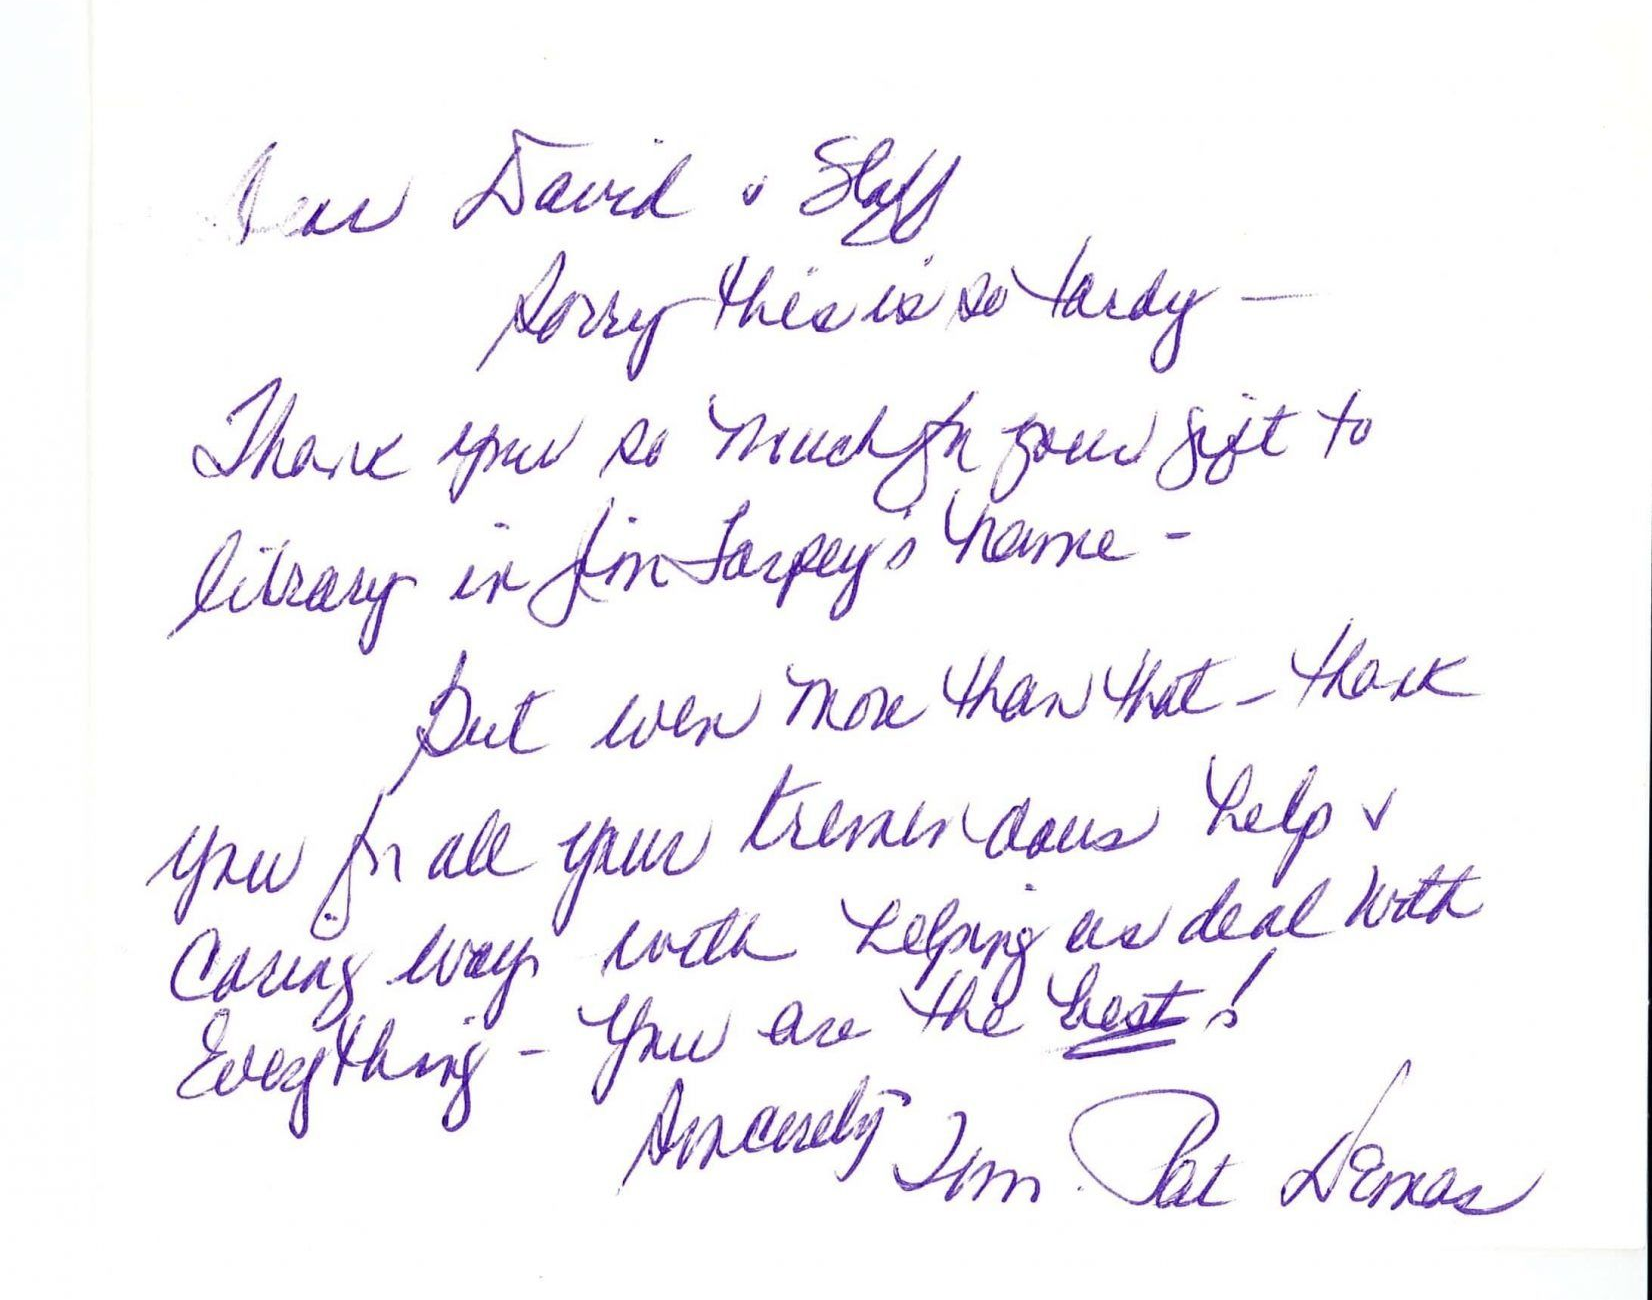 Dear David & Staff
Sorry this is so tardy —
Thank you so much for your gift to
library in Jim Tarpey's name -
But even more than that - thank
you for all your tremendous help &
caring way with helping us deal with
Everything - You are the best!
Sincerely Tom Pat DEmas